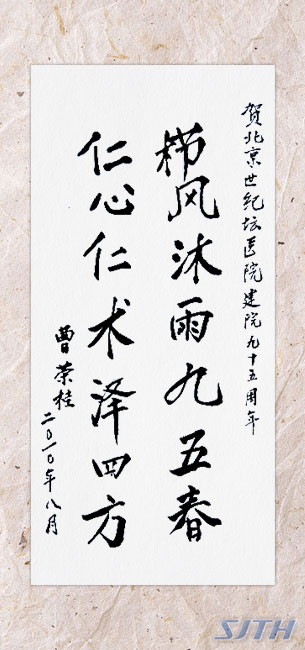 贺北京世纪坛医院建院九十五周年
栉风沐雨九五春
仁心仁术泽四方
曹荣桂
二〇一〇年八月
SJTH